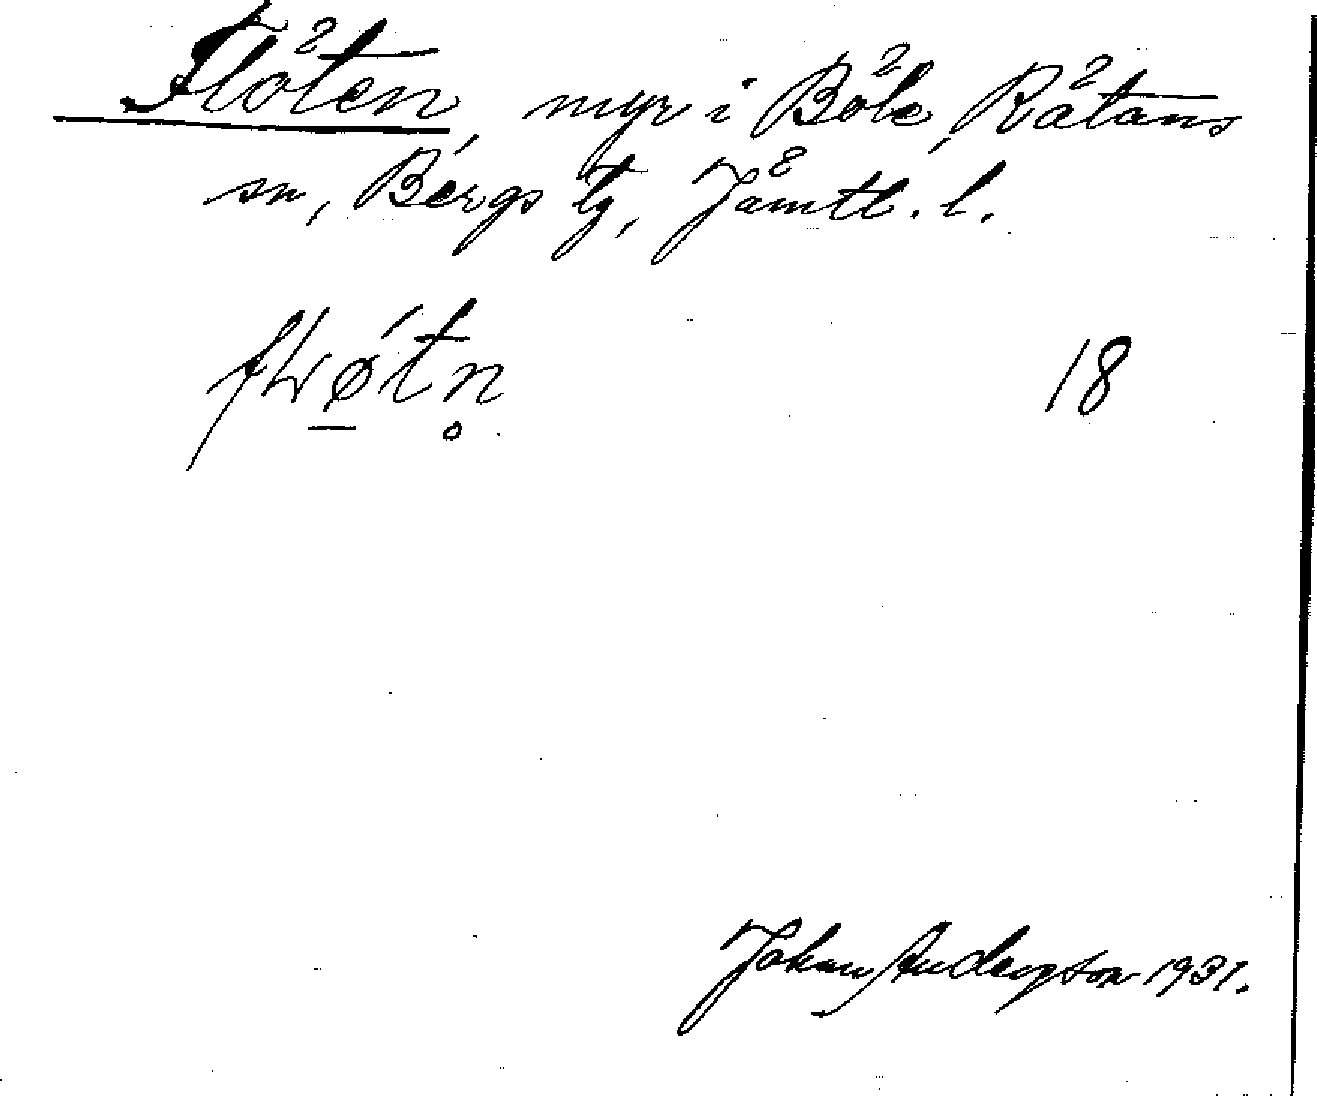 Flöten, myr i Böle, Rätans
sn, Bergs tg, Jämtl. l.
18
Johan Anderson 1931.